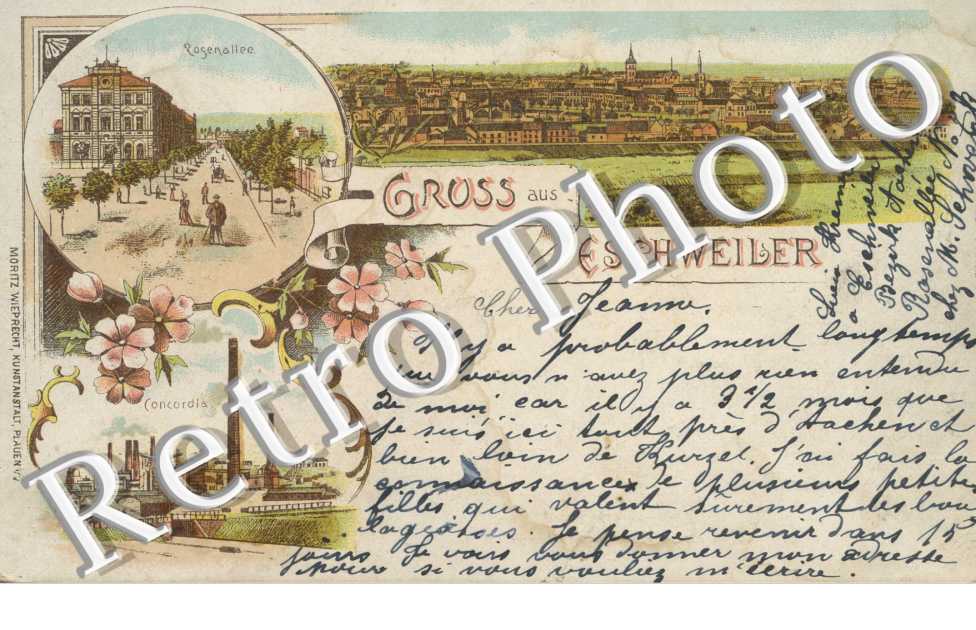 Rosenallee
GRUSS aus
ESCHWEILER
Concordia
MORITZ WIEPRECHT, KUNSTANSTALT, PLAUEN
Retro Photo
Cher Jeanne.
Il y a probablement longtemps
que vous n'avez plus rien entendu
de moi, car il y a 3 1/2 mois que
je suis ici tout près d'Aachen et
bien loin de Kurzel. J'ai fais la
connaissance de plusieurs petites
filles qui valent sûrement les bou
lageoises. Je pense revenir dans 15
jours Je vais vous donner mon adresse
pour si vous vouliez m'écrire.
à Eschweiler
Bezirk Aachen
Rosenallee No
chez M.